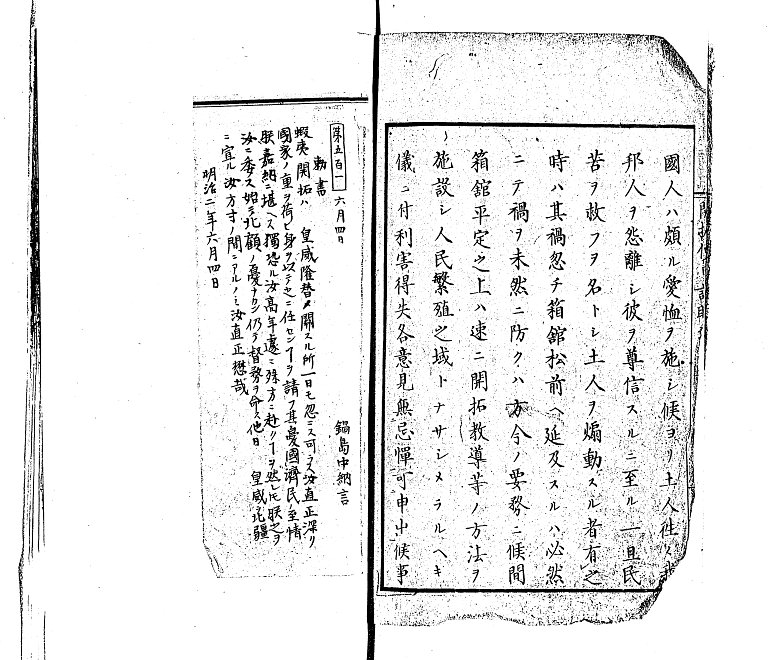 國人ハ頗ル愛恤ヲ施シ候ヨリ土人徃々我
邦人ヲ怨離シ彼ヲ尊信スルニ至ル一旦民
苦ヲ救フヲ名トシ土人ヲ煽動スル者有之
時ハ其禍忽チ箱舘松前ヘ延及スルハ必然
ニテ禍ヲ未然ニ防クハ方今ノ要務ニ候間
箱舘平定之上ハ速ニ開拓教導等ノ方法ヲ
施設シ人民繁殖之域トナサシメラルヘキ
儀ニ付利害得失各意見無忌憚可申出候事
第五百一 六月四日
勅書 鍋島中納言
蝦夷開拓ハ 皇威隆替ノ關スル所一日モ忽ニス可ラス汝直正深ク
國家ノ重ヲ荷ヒ身ヲ以テ之ニ任センヿヲ請フ其憂國濟民ノ至情
朕嘉納ニ堪ヘス獨恐ル汝高年遽ニ殊方ニ赴クヿヲ然レ𪜈朕之ヲ
汝ニ委ス始テ北顧ノ憂ナカラン仍テ督務ヲ命ス他日 皇威北疆
ニ宣ル汝方寸ノ間ニアルノミ汝直正懋哉
明治二年六月四日